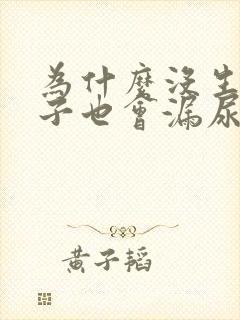 為什麼沒生
子也會漏尿
黃子韜